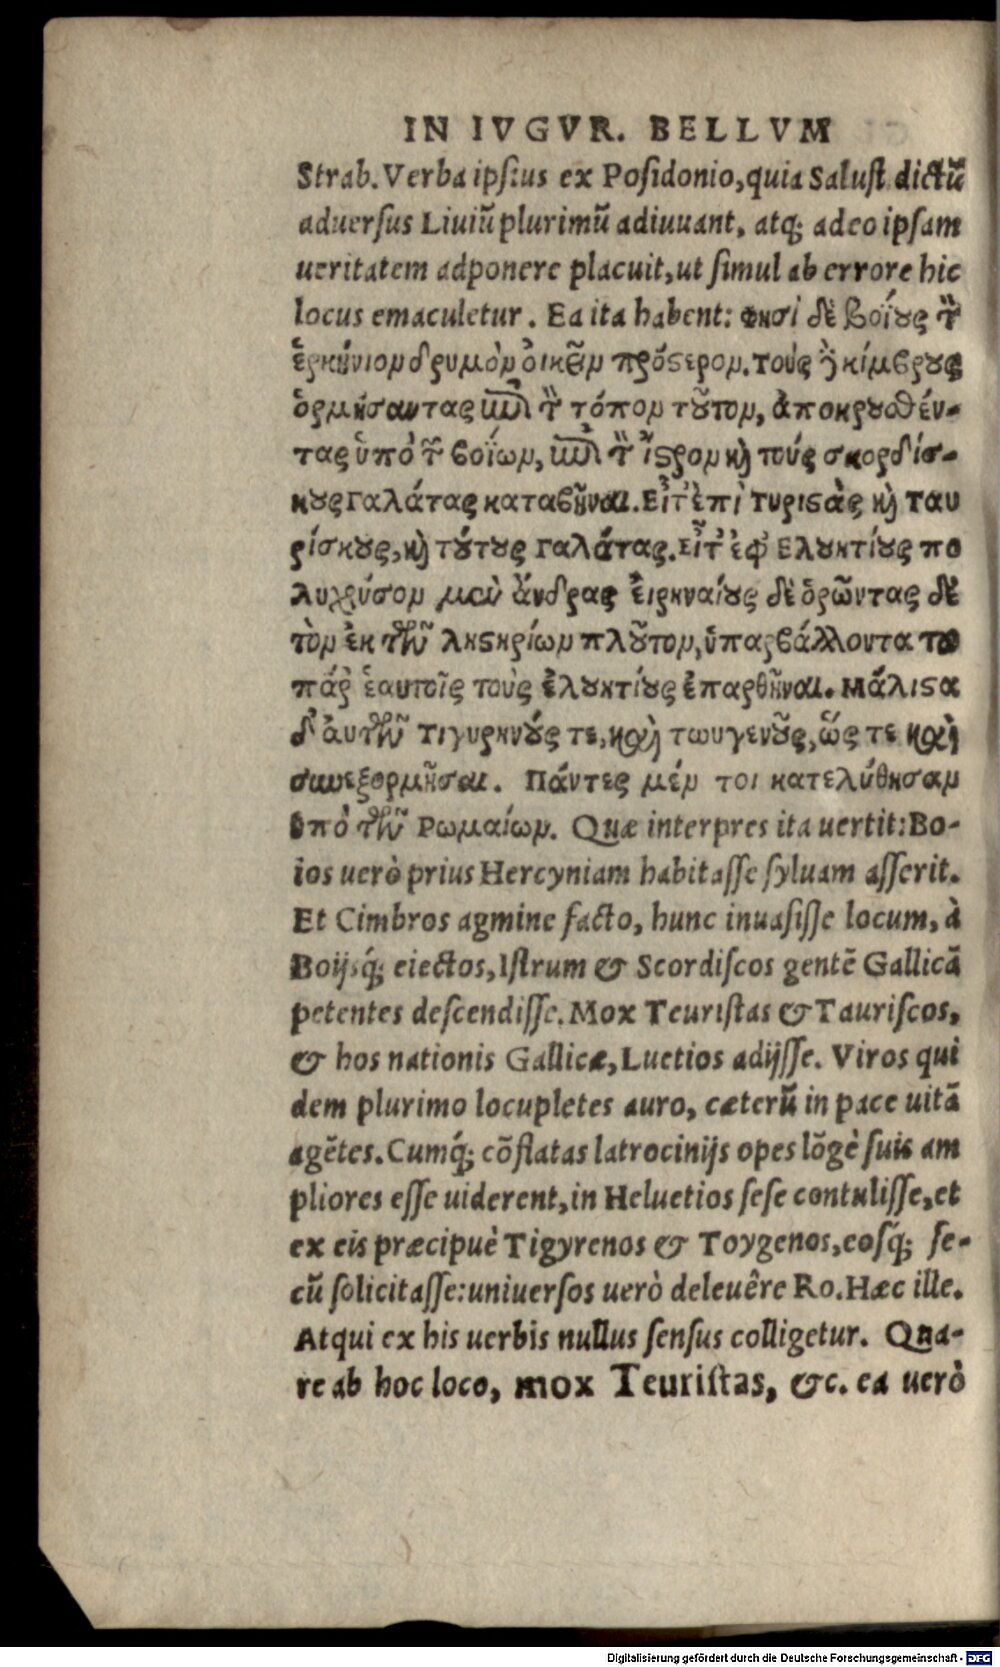 IN IVGVR. BELLVM
Strab. Verba ipsius ex Posidonio, quia Salust dictū
aduersus Liuiū plurimū adiuuant, atq; adeo ipsam
ueritatem adponere placuit, ut simul ab errore hic
locus emaculetur. Ea ita habent: Φησὶ δὲ βοΐους τ̀
ἑρκύνιον δρυμὸν οἰκεῖν πρότερον. τοὺς ἢ κίμβρους
ὁρμήσαντας ἐπὶ τ̀ τόπον τοῦτον, ἀποκρουσθέν-
τας ὑπὸ τ̃ βοΐων, ἐπὶ τ̀ ἴστρον κὴ τοὺς σκορδίσ-
κους Γαλάτας καταβῆναι. Εἶτ' ἐπὶ τυριστὰς κὴ Ταυ
ρίσκους, κὴ τούτους Γαλάτας. εἶτ' ἐφ' Ελουητίους πο
λυχρύσου μὲν ἄνδρας εἰρηναίους δὲ ὁρῶντας δὲ
τὸν ἐκ τῶν ληστηρίων πλοῦτον, ὑπερβάλλοντα του
πάρ' ἑαυτοῖς τοὺς ἐλουητίους ἐπαρθῆναι. Μάλιστα
δ' αὐτῶν τιγυρηνούς τε, καὶ τωυγενοῦς, ὥς τε καὶ
συνεξορμῆσαι. Πάντες μέν τοι κατελύθησαν
ὑπὸ τῶν Ρωμαίων. Quæ interpres ita uertit: Bo-
ios uerò prius Hercyniam habitasse syluam asserit.
Et Cimbros agmine facto, hunc inuasisse locum, à
Boijsq́; eiectos, Istrum & Scordiscos gentē Gallicā
petentes descendisse. Mox Teuristas & Tauriscos,
& hos nationis Gallicæ, Luetios adijsse. Viros qui
dem plurimo locupletes auro, cæterū in pace uitā
agētes. Cumq́; cōflatas latrocinijs opes lōgè suis am
pliores esse uiderent, in Heluetios sese contulisse, et
ex eis præcipuè Tigyrenos & Toygenos, eosq́; se-
cū solicitasse: uniuersos uerò deleuêre Ro. Hæc ille.
Atqui ex his uerbis nullus sensus colligetur. Qua-
re ab hoc loco, mox Teuristas, &c. ea uerò
Digitalisierung gefördert durch die Deutsche Forschungsgemeinschaft - DFG